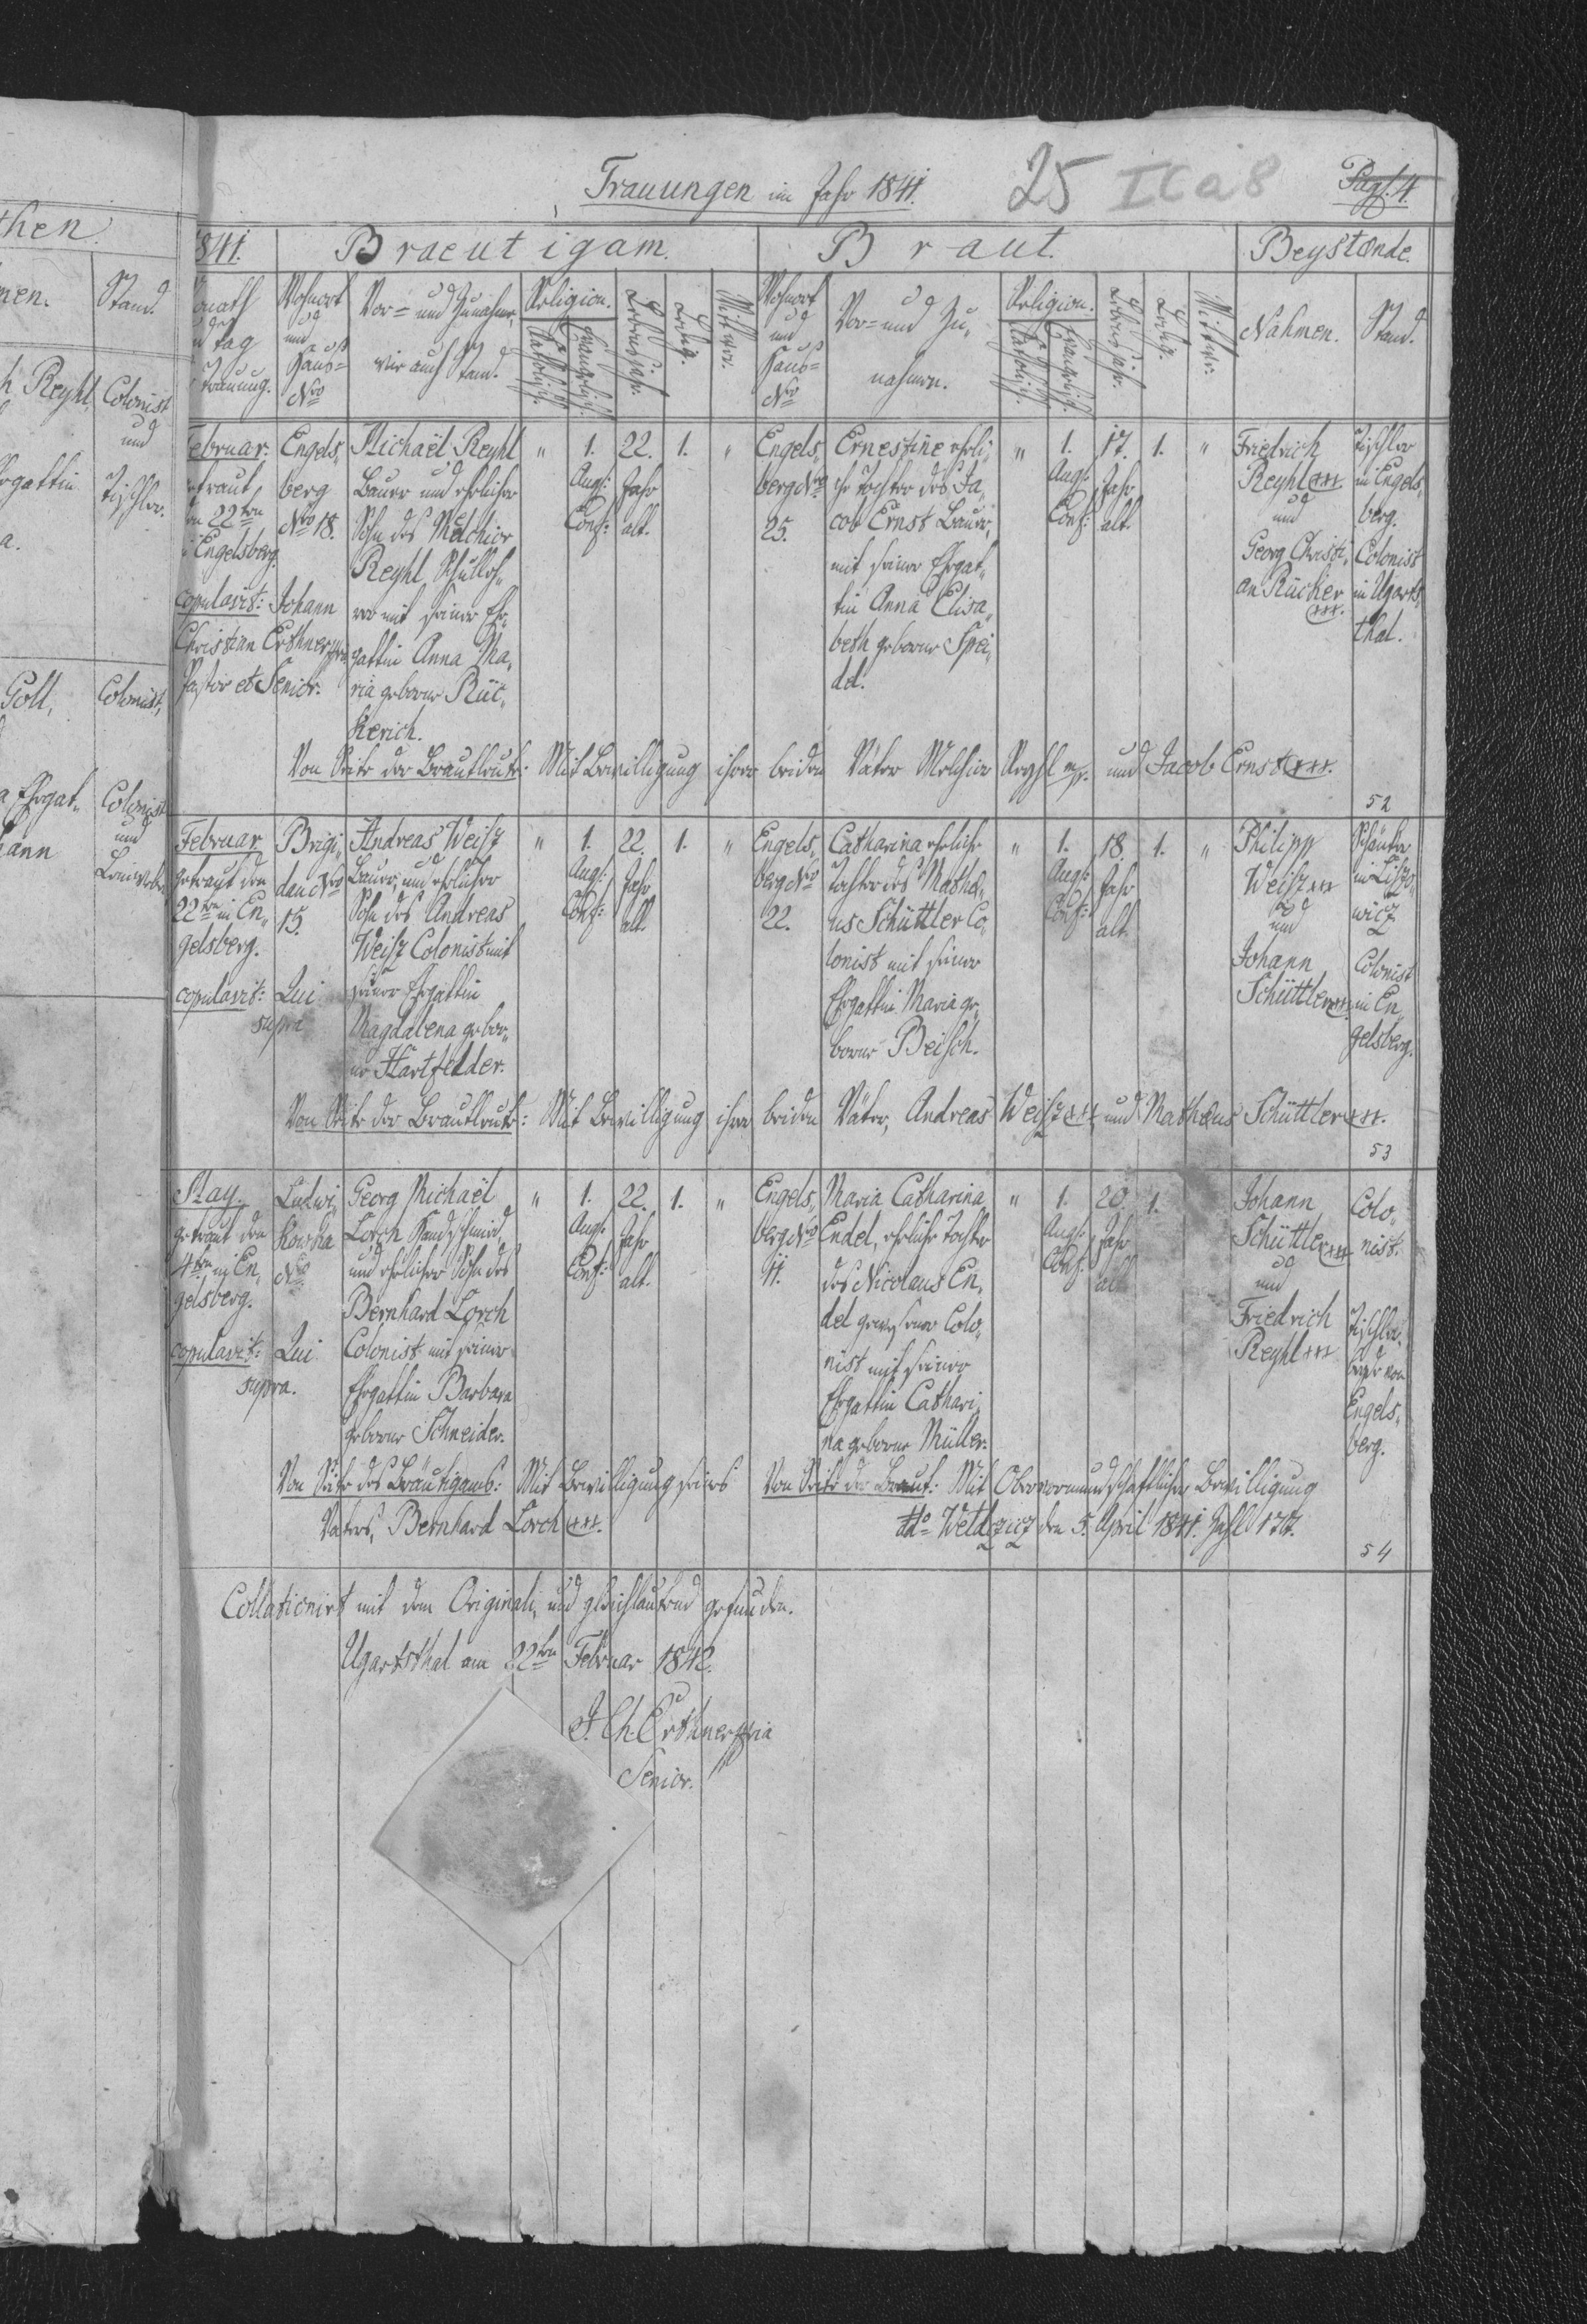 Trauungen im Jahr 1841.
25 II C a 8
Pag. 4.
1841.
Braeutigam.
Braut.
Beystænde.
Monath
und Tag
Trauung.
Wohnort
und
Haus=
Nro
Vor= und Zunahme,
wie auch Stand.
Religion.
Katholisch.
Evangelisch.
Lebensjahr.
Ledig.
Wittwer.
Wohnort
und
Haus=
Nro
Vor= und Zu„
nahmen.
Religion.
Katholisch.
Evangelisch.
Lebensjahr.
Ledig.
Wittwe.
Nahmen.
Stand.
Februar.
getraut
den 22ten
in Engelsberg.
copulavit: Johann
Christian Erthner mpria
Pastor et Senior.
Engels„
berg
Nro 18.
Michaël Reyhl
Bauer und ehelicher
Sohn des Melchior
Reyhl Schulleh„
rer mit seiner Ehe„
gattin Anna Ma„
ria geborne Rüc„
kerich.
„ 1. 22. 1. „
Augs: Jahr
Conf: alt.
Engels„
berg Nro
25.
Ernestine eheli„
che Tochter des Ja„
cob Ernst Bauer,
mit seiner Ehegat„
tin Anna Elisa„
beth geborne Spei„
del.
„ 1. 17. 1. „
Augs: Jahr
Conf: alt.
Friedrich
Reyhl +++
und
Georg Christi„
an Rücker
+++.
Tischler
in Engels„
berg.
Colonist
in Ugarts„
thal.
Von Seite der Brautleute: Mit Bewilligung ihrer beiden Väter Melchior Reyhl mp. und Jacob Ernst +++.
52
Februar
getraut den
22ten in En„
gelsberg.
copulavit: Qui
supra
Brigi„
dau Nro
15.
Andreas Weisz
Bauer, und ehelicher
Sohn des Andreas
Weisz Colonist mit
seiner Ehegattin
Magdalena gebor„
ne Hartfelder.
„ 1. 22. 1. „
Augs: Jahr
Conf: alt.
Engels„
berg Nro
22.
Catharina eheliche
Tochter des Mathæ„
us Schüttler Co„
lonist mit seiner
Ehegattin Maria ge„
borne Beisch.
„ 1. 18. 1. „
Augs: Jahr
Conf: alt.
Philipp
Weisz +++
und
Johann
Schüttler +++.
Schänker
in
wicz
Colonist
in En„
gelsberg.
Von Seite der Brautleute: Mit Bewilligung ihrer beiden Väter, Andreas Weisz +++ und Mathæus Schüttler +++.
53
May.
getraut den
4ten in En„
gelsberg.
copulavit: Qui
supra.
Ludwi„
kowka
Nro
Georg Michaël
Lorch
und ehelicher Sohn des
Bernhard Lorch
Colonist mit seiner
Ehegattin Barbara
geborne Schneider.
„ 1. 22. 1. „
Augs: Jahr
Conf: alt.
Engels„
berg Nro
11.
Maria Catharina
Endel, eheliche Tochter
des Nicolaus En„
del gewesener Colo„
nist mit seiner
Ehegattin Cathari„
na geborne Müller.
„ 1. 20. 1.
Augs: Jahr
Conf: alt
Johann
Schüttler +++
und
Friedrich
Reyhl +++
Colo„
nist.
Tischler,
beyde von
Engels„
berg.
Von Seite des Bräutigams: Mit Bewilligung seines
Vaters, Bernhard Lorch +++.
Von Seite der Braut: Mit Obervormundschaftlicher Bewilligung
ddo Weldzicz den 5. April 1841. Zahl 177.
54
Collationirt mit dem Originali, und gleichlautend gefunden.
Ugartsthal am 22ten Februar 1842.
J. Ch. Erthner mpria
Senior.
then.
men.
Stand.
h Reyhl
Colonist
und
Tischler.
gattin
a.
Goll,
Colonist,
a Ehegat„
hann
Colonist
und
Leinweber